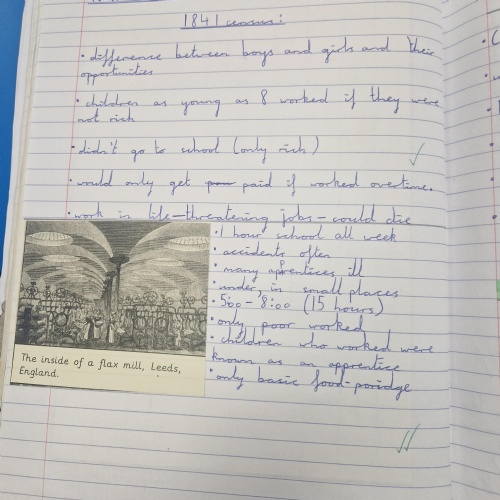 1841 census:
• difference between boys and girls and their
opportunities
• children as young as 8 worked if they were
not rich
• didn't go to school (only rich)
• would only get paid if worked overtime.
• work in life-threatering jobs - could die
• 1 hour school all week
• accidents often
• many aprentices ill
• under, in small places
• 5:00 - 8:00 (15 hours)
• only poor worked
• children who worked were
known as an apprentice
• only basic food-poridge
The inside of a flax mill, Leeds,
England.